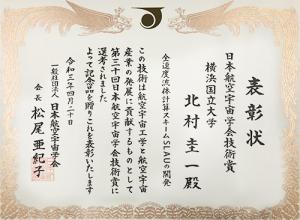 表彰状
日本航空宇宙学会技術賞
横浜国立大学
北村圭一殿
全速度流体計算スキームSLAUの開発
この技術は航空宇宙工学と航空宇宙
産業の発展に貢献するものとして
第三十回日本航空宇宙学会技術賞に
選考されました
よって記念品を贈りこれを表彰いたします
令和三年四月二十日
一般社団法人 日本航空宇宙学会
会長 松尾亜紀子